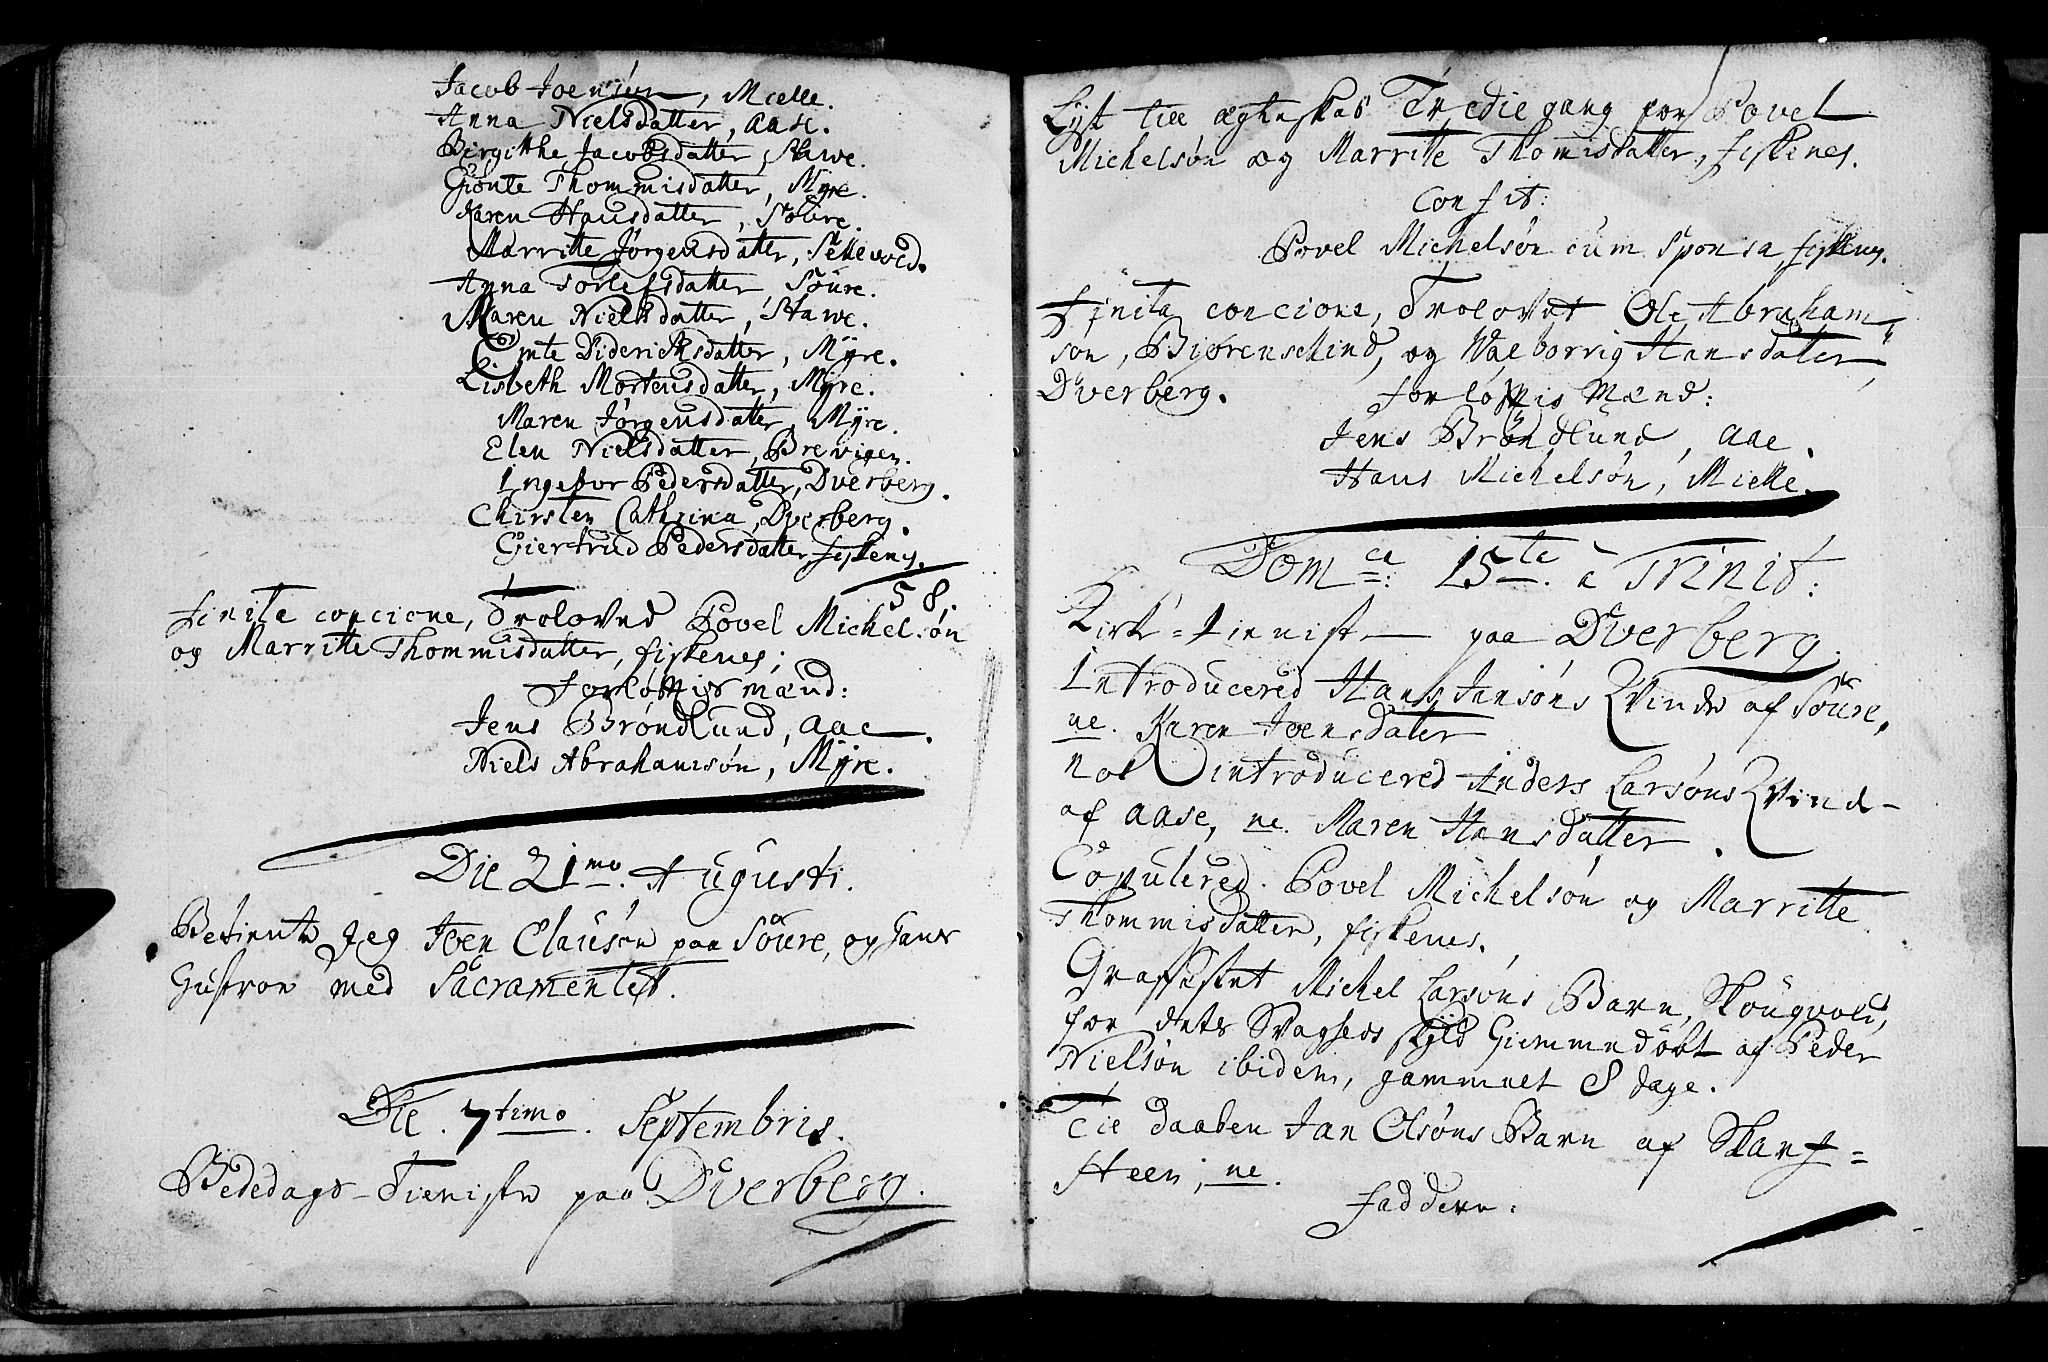 Jacob Joensøn, Mielle.
Anna Nielsdatter, Aase.
Birgitthe Jacobsdatter, Stawe.
Giønte Thommisdatter, Myre.
Karen Hansdatter, Söure.
Marritte Jørgensdatter, Settevold.
Anna Torlefsdatter, Söure.
Maren Nielsdatter, Stawe.
Giønte Diderichsdatter, Myre.
Lisbeth Mortensdatter, Myre.
Maren Jørgensdatter, Myre.
Elen Nielsdatter, Brevigen.
Ingebor Pedersdatter, Dverberg.
Chirsten Cathrina, Dverberg.
Giertrud Pedersdatter, fiskenes.
58.
Finita concione, Troloved Povel Michelsøn
og Marritte Thommisdatter, fiskenes;
Forløftis mænd:
Jens Brøndlund, Aae.
Niels Abrahamsøn, Myre.
Die 21mo. Augusti.
Betiente jeg Joen Clausøn paa Söure, og hans
Hustroe med Sacramentet.
Die. 7timo. Septembris.
Bededags-Tieniste paa Dverberg.
Lyst till ægteskab Tredie gang for Povel
Michelsøn og Marritte Thomisdatter, fiskenes.
Confit:
Povel Michelsøn cum Sponsa, fiskenes.
Finita concione, Trolovet Ole Abraham-
søn, Biørenschind, og Walborrig Hansdater
Dverberg. Forløftis Mænd:
Jens Brøndlund, Aae.
Hans Michelsøn, Mielle.
Domce: 15te. à Trinit:
Kirke=Tieniste paa Dverberg.
Introducered Hans Jensøns Qvinde af Söure,
ne. Karen Joensdater
Noch introducered Anders Larsøns Qvinde
af Aase, ne. Maren Hansdatter.
Copulered. Povel Michelsøn og Marritte
Thommisdatter, fiskenes.
Graffæstet Michel Larsøns Barn, Skougvold,
for dets Svagheds skyld Hiemmedøbt af Peder
Nielsøn ibidem, gammelt 8 dage.
Till daaben Jan Olsøns Barn af Skarf=
steen; ne.
Faddere: